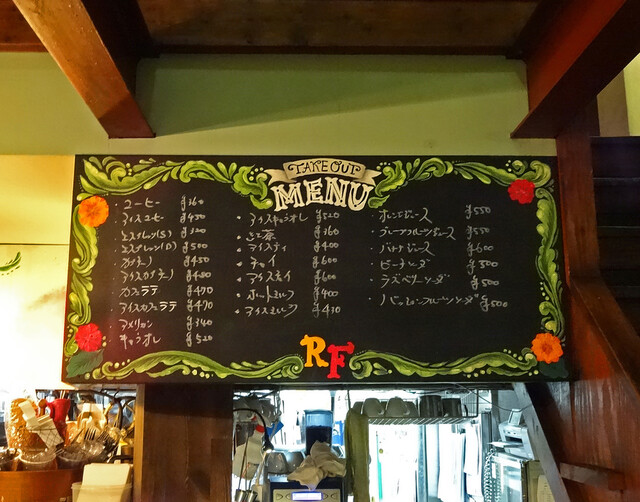 TAKE OUT
MENU
・コーヒー ¥360
・アイスコーヒー ¥430
・エスプレッソ(S) ¥320
・エスプレッソ(D) ¥500
・カプチーノ ¥450
・アイスカプチーノ ¥480
・カフェラテ ¥470
・アイスカフェラテ ¥470
・アメリカン ¥340
・キャラオレ ¥520
・アイスキャラオレ ¥520
・紅茶 ¥360
・アイスティ ¥400
・チャイ ¥600
・アイスチャイ ¥600
・ホットミルク ¥400
・アイスミルク ¥430
・オレンジジュース ¥550
・グレープフルーツジュース ¥550
・バナナジュース ¥600
・ピーチソーダ ¥500
・ラズベリーソーダ ¥500
・パッションフルーツソーダ ¥500
RF